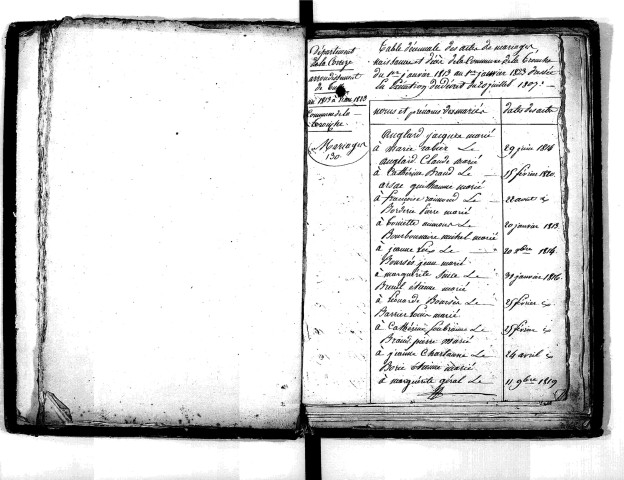 Département
de la Corrèze
arrondissement
de
au 1813 à 1823
Commune de la
Mariages
130
Table décennale des actes de mariages
naissances et décès de la Commune de la
du 1er janvier 1813 au 1er janvier 1823 dressée
En Exécution du décret du 20 juillet 1807.
noms et prénoms des mariés
dates des actes
Auglard jacques marié
à Marie Le 29 juin 1816
Auglard Claude marié
à Cathérine Braud Le 15 février 1820.
arsac guilhaume marié
à françoise raimond Le 22 aout
Borderie Pierre marié
à Toinette Le 20 janvier 1813.
Bourbonnaire michel marié
à jeanne Le 20 1814.
Boursès jean marié
à marguerite Le 31 janvier 1816.
Breuil étienne marié
à Léonarde Boursès Le 25 février
Barrier Louis marié
à Cathérine Le 25 février
Braud pierre marié
à jeanne Chastanne Le 24 avril
Borie Etienne marié
à marguerite géral Le 11 9bre 1819